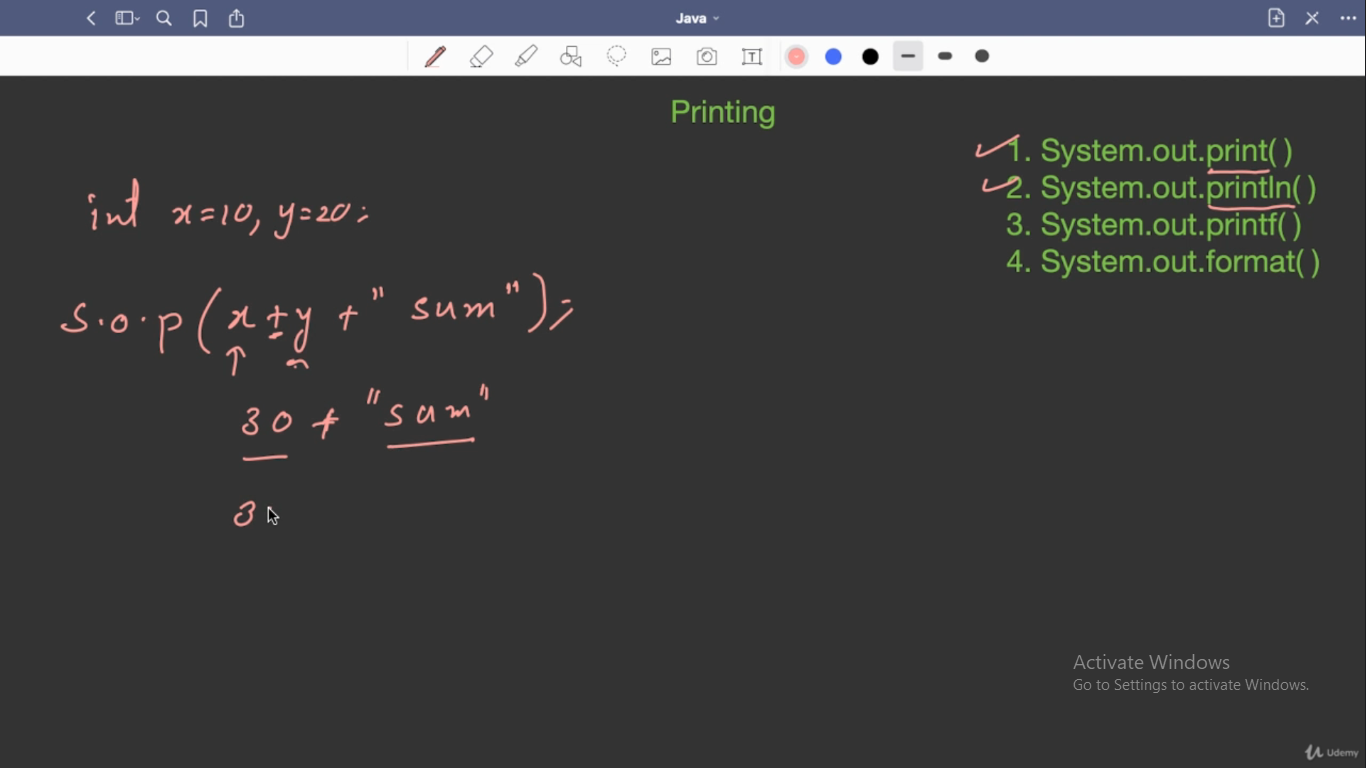 Java
Printing
1. System.out.print( )
2. System.out.println( )
3. System.out.printf( )
4. System.out.format( )
int x=10, y=20;
S.o.p(x+y +"sum");
30 + "sum"
3
Activate Windows
Go to Settings to activate Windows.
Udemy